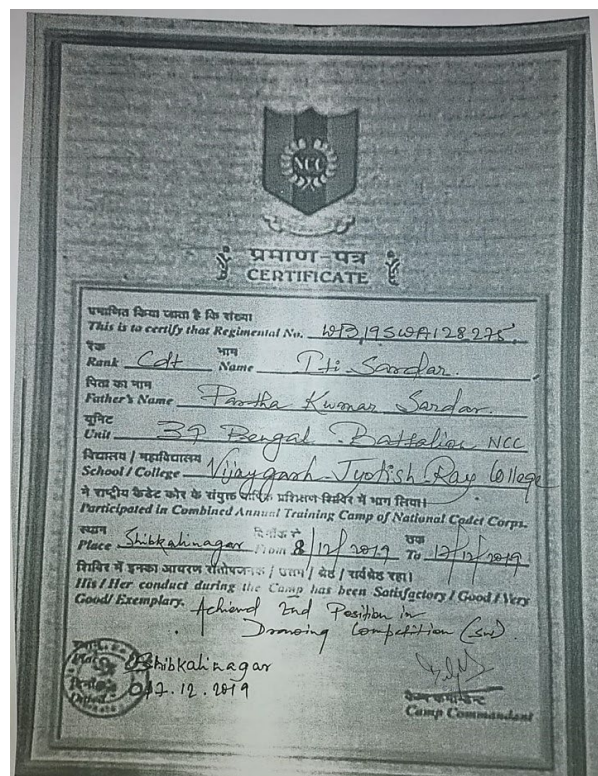 NCC
प्रमाण-पत्र
CERTIFICATE
प्रमाणित किया जाता है कि संख्या
This is to certify that Regimental No. WB19SWA128275
रैंक नाम
Rank Cdt Name Sardar
पिता का नाम
Father's Name Partha Kumar Sardar
यूनिट
Unit 39 Bengal Battalion NCC
विद्यालय / महाविद्यालय
School / College Vijaygarh Jyotish Ray College
ने राष्ट्रीय कैडेट कोर के संयुक्त वार्षिक प्रशिक्षण शिविर में भाग लिया।
Participated in Combined Annual Training Camp of National Cadet Corps.
स्थान दिनाँक से तक
Place Shibkalinagar From 8/12/2019 To 17/12/2019
शिविर में इनका आचरण संतोषजनक / उत्तम / श्रेष्ठ / सर्वश्रेष्ठ रहा।
His / Her conduct during the Camp has been Satisfactory / Good / Very
Good / Exemplary. Achieved 2nd Position in
Drawing Competition (SW).
Shibkalinagar
17.12.2019
कैम्प कमान्डेन्ट
Camp Commandant